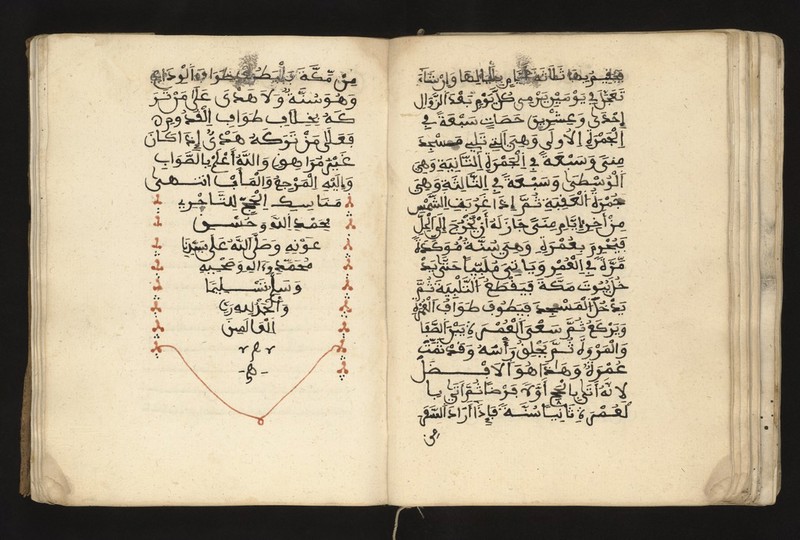 بلياليها وإن شاء
تعجل في يومين يرمي كل يوم بعد الزوال
إحدى وعشرين حصات سبعة في
الجمرة الأولى وهي التي تلي مسجد
منى وسبعة في الجمرة الثانية وهي
الوسطى وسبعة في الثالثة وهي
جمرة العقبة ثم إذا غربت الشمس
من أخر أيام منى جاز له أن يخرج إلى الحل
فيحرم بعمرة وهي سنة مؤكدة
مرة في العمر ويأتي ملبيا حتى يد
خل بيوت مكة فيقطع التلبية ثم
يدخل المسجد فيطوف طواف العمرة
ويركع ثم سعى العمرة بين الصفا
والمروة ثم يحلق رأسه وقد تمت
عمرته وهاذا هو الافضل
لانه أتى بالحج أولا فرضا ثم أتى با
لعمرة ثانيا سنة فإذا أراد السفر
من
من مكة طواف الوداع
وهو سنة ولا هدى على من تر
كه بخلاف طواف القدوم
فعلى من تركه هدي إذا كان
غير مراهق والله أعلم بالصواب
وإليه المرجع والمأب انتهى
مناسك الحج للتاجوري
بحمد الله وحسن
عونه وصلى الله على سيدنا
محمد وءاله وصحبه
وسلم تسليما
والحمد لله رب
العالمين